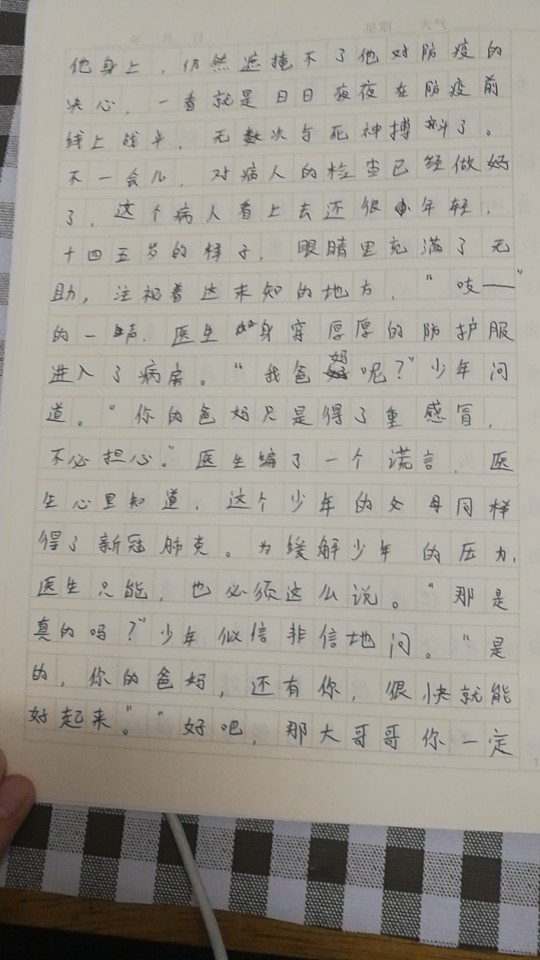 年 月 日 星期 天气
他身上，仍然遮掩不了他对防疫的
决心，一看就是日日夜夜在防疫前
线上战斗，无数次与死神搏斗了。
不一会儿，对病人的检查已经做好
了，这个病人看上去还很年轻，
十四五岁的样子，眼睛里充满了无
助，注视着这未知的地方，“吱——”
的一声，医生身穿厚厚的防护服
进入了病房。“我爸妈呢？”少年问
道。“你的爸妈只是得了重感冒，
不必担心。”医生编了一个谎言，医
生心里知道，这个少年的父母同样
得了新冠肺炎。为缓解少年的压力，
医生只能，也必须这么说。“那是
真的吗？”少年似信非信地问。“是
的，你的爸妈，还有你，很快就能
好起来。”“好吧，那大哥哥你一定